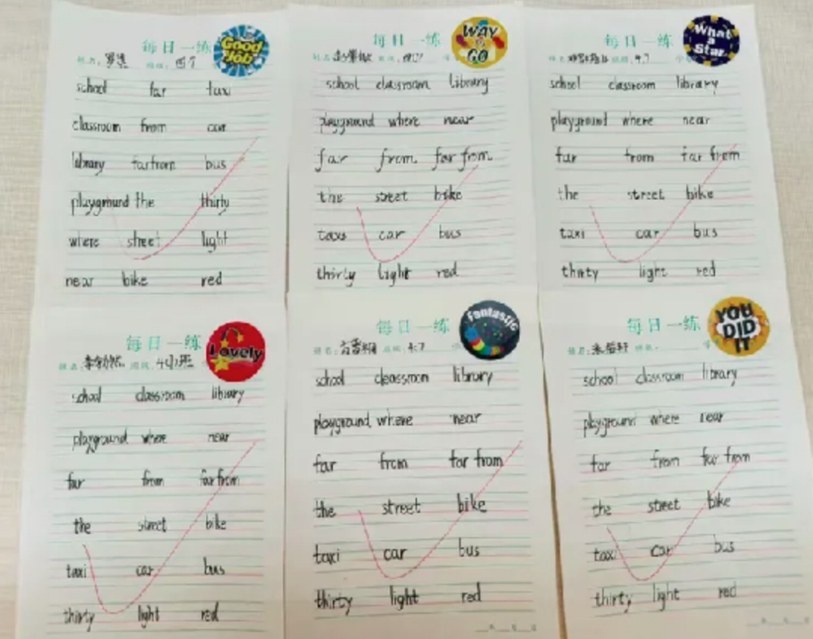 每日一练
Good Job
姓名: 班级: 四7
school far taxi
classroom from car
library far from bus
playground the thirty
where street light
near bike red
每日一练
WAY to GO
school classroom library
playground where near
far from far from
the street bike
taxi car bus
thirty light red
每日一练
What a Star
4.7
school classroom library
playground where near
far from far from
the street bike
taxi car bus
thirty light red
每日一练
Lovely
school classroom library
playground where near
far from far from
the street bike
taxi car bus
thirty light red
每日一练
Fantastic
4.7
school cleassroom library
playground where near
far from far from
the street bike
taxi car bus
thirty light red
每日一练
YOU DID IT
school classroom library
playground where near
far from far from
the street bike
taxi car bus
thirty light red